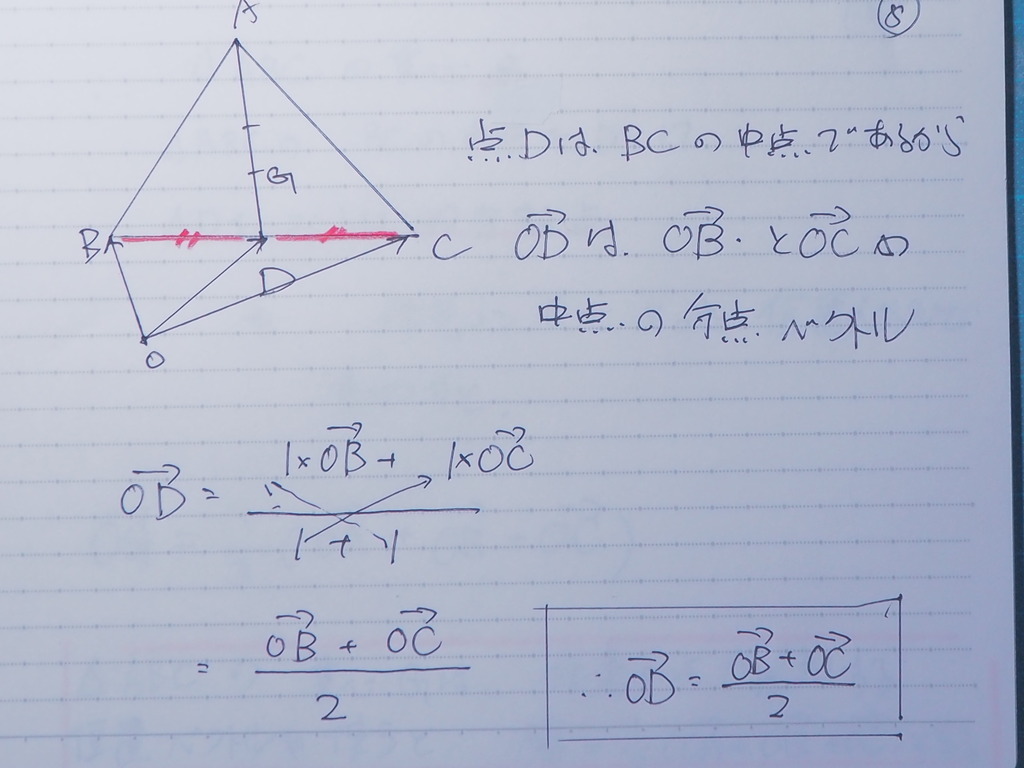 ⑧
A
G
B
C
D
O
点Dは、BCの中点であるから
→ODは、→OB・と→OCの
中点の分点ベクトル
→OD = (1×→OB + 1×→OC) / (1 + 1)
= (→OB + →OC) / 2
∴→OB = (→OB + →OC) / 2